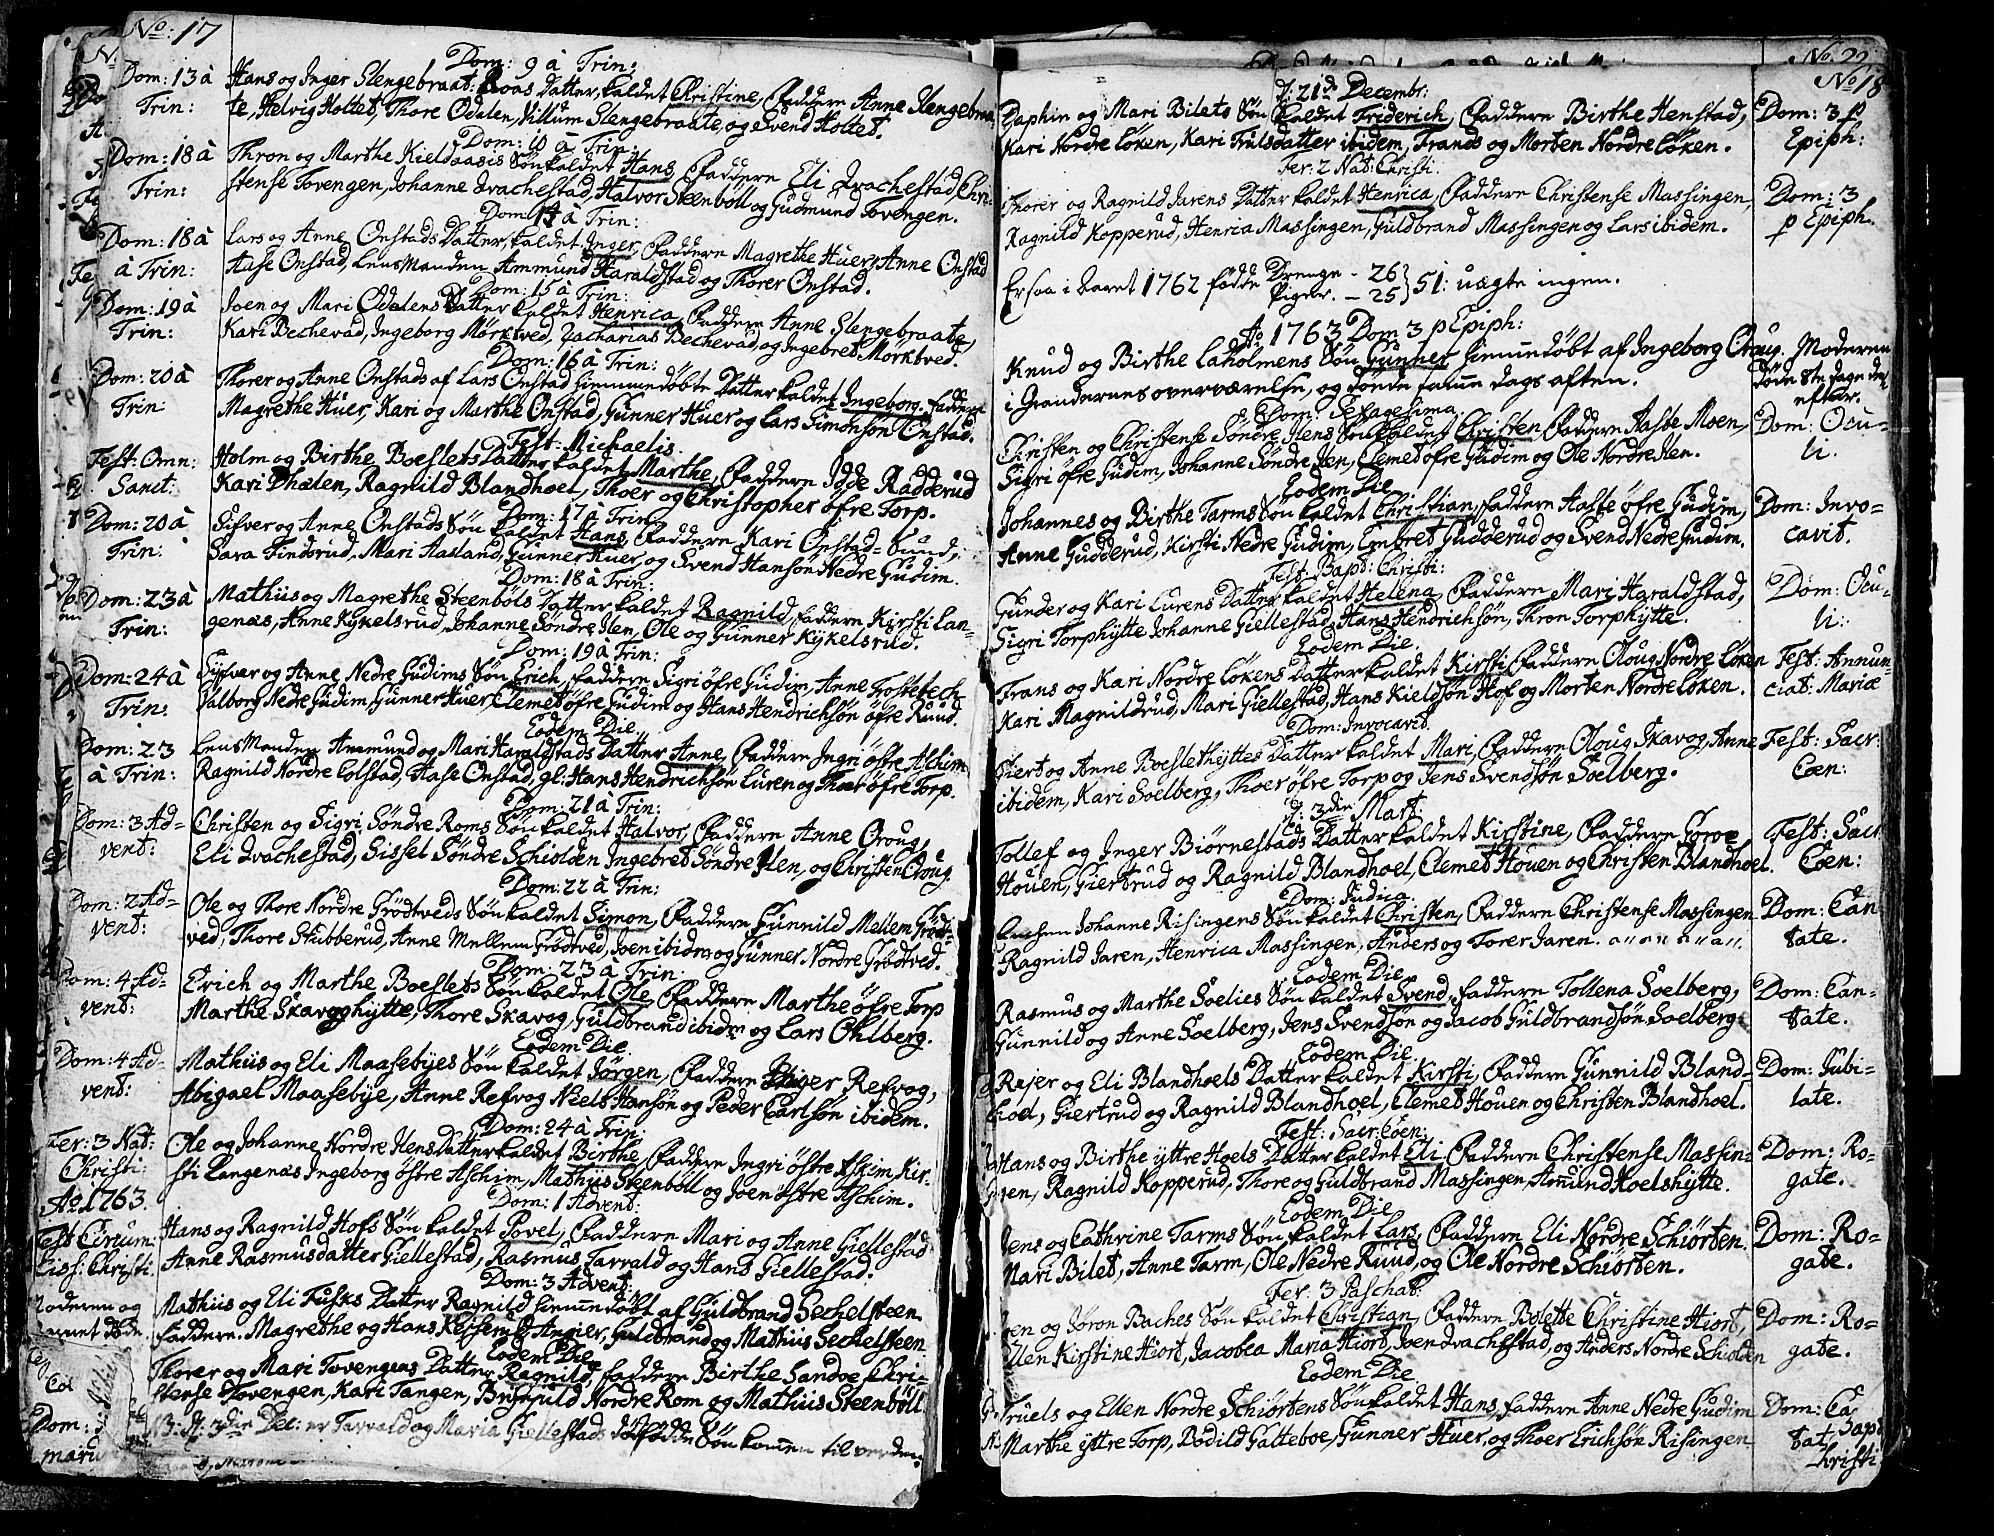 No: 17
Dom: 9 à Trin:
Dom: 13 à Hans og Inger Slengebraat: Roas Datter, kaldet Christine, Faddere Anne Slengebraa
Trin: te, Helvig Holtet, Thore Odalen, Villum Slengebraate, og Svend Holtet.
Dom: 10 à Trin:
Dom: 18 à Thron og Marthe Kieldaasis Søn kaldet Hans, Faddere Eli Drachestad, Chri-
Trin: stense Tovengen, Johanne Drachestad, Halvor Steenböll og Gudmund Tovengen.
Dom: 14 à Trin:
Dom: 18 à Lars og Anne Onstads Datter, kaldet Inger, Faddere Magrethe Huer, Anne Onstad
à Trin: Aase Onstad, LensManden Ammund Haraldstad og Thorer Onstad.
Dom: 15 à Trin:
Dom: 19 à Joen og Mari Odalens Datter kaldet Henrica, Faddere Anne Slengebraate,
Trin: Kari Bechevad, Ingeborg Mörktved, Zacharias Bechevad, og Ingebret Morktved.
Dom: 16 à Trin:
Dom: 20 à Thorer og Anne Onstads af Lars Onstad hiemmedøbte Datter kaldet Ingeborg. Faddere
Trin Magrethe Huer, Kari og Marthe Onstad, Gunner Huer og Lars Simonsøn Onstad.
Fest: Michaelis.
Fest: Omn: Holm og Birthe Boeslets Datter kaldet Marthe, Faddere Idde Radderud
Sanct: Kari Dhalen, Ragnild Blandhoel, Thoer og Christopher öfre Torp.
Dom: 17 à Trin:
Dom: 20 à Sifver og Anne Onstads Søn kaldet Hans, Faddere Kari Onstad-Sund,
Trin: Sara Findsrud, Mari Aasland, Gunner Huer, og Svend Hansøn Nedre Gudim.
Dom: 18 à Trin:
Dom: 23 à Mathiis og Magrethe Steenböls Datter kaldet Ragnild, Faddere Kirsti Lan-
Trin: genæs, Anne Kykelsrud, Johanne Söndre Ilen, Ole og Gunner Kykelsrud.
Dom: 19 à Trin:
Dom: 24 à Syfver og Anne Nedre Gudims Søn Erich, Faddere Sigri öfre Gudim, Anne Frostebech
Trin: Valborg Nedre Gudim, Gunner Huer, Clemet öfre Gudim og Hans Hendrichsøn öfre Ruud.
Eodem Die
Dom: 23 LensManden Ammund og Mari Haraldstads Datter Anne, Faddere Ingri östre Aschim
à Trin: Ragnild Nordre Colstad, Aase Onstad, gl: Hans Hendrichsøn Luren og Thoer öfre Torp.
Dom: 21 à Trin:
Dom: 3 Ad- Christen og Sigri Söndre Roms Søn kaldet Halvor, Faddere Anne Croug,
vent: Eli Drachestad, Sissel Söndre Schiolden, Ingebret Söndre Ilen, og Christen Croug.
Dom: 22 à Trin:
Dom: 2 Ad- Ole og Thore Nordre Grödtveds Søn kaldet Simon, Faddere Gunnild Mellem Gröd-
vent: ved, Thore Stubberud, Anne Mellem Grödtved, Joen ibidm og Gunner Nordre Grödtved.
Dom: 23 à Trin:
Dom: 4 Ad- Erich og Marthe Boeslets Søn kaldet Ole, Faddere Marthe öfre Torp
vent: Marthe Skavoghytte, Thore Skavog, Guldbrand ibidm og Lars Ohlberg.
Eodem Die
Dom: 4 Ad- Mathiis og Eli Maasebyes Søn kaldet Jörgen, Faddere Inger Refvog,
vent: Abigael Maasebye, Anne Refvog Niels Hansøn og Peder Carlsøn ibidem.
Dom: 24 à Trin:
Fer: 3 Nat: Ole og Johanne Nordre Ilens Datter kaldet Birthe, Faddere Ingri östre Aschim, Kir-
Christi: sti Langenæs, Ingeborg östre Aschim, Mathiis Steenböll og Joen östre Aschim.
Ao 1763. Dom: 1 Advent:
Fest Circum: Hans og Ragnild Hofs Søn kaldet Povel, Faddere Mari og Anne Giellestad
Ciss: Christi. Anne Rasmusdatter Giellestad, Rasmus Tarvald og Hans Giellestad.
Dom: 3 Advent:
Moderen og Mathiis og Eli Fusks Datter Ragnild hiemmedøbt af Guldbrand Sechelsteen
Barnet døde Faddere. Magrethe og Hans Guldbrand og Mathiis Sechelsteen
Eodem Die
Thorer og Mari Tovengens Datter Ragnild, Faddere Birthe Sandve, Chri-
stense Tovengen, Kari Tangen, Brynnild Nordre Rom og Mathiis Steenböll
Dom: N3. d: 3die Dec: er Tarvald og Maria Giellestads dödfødde Søn kommen til verden.

No. 22
No 18
d: 21de Decembr:
Daphin og Mari Bilets Søn kaldet Friderich, Faddere Birthe Henstad, Dom: 3 p
Kari Nordre Löken, Kari Trulsdatter ibidem, Frands og Morten Nordre Löken. Epiph:
Fer: 2 Nat: Christi.
Thorer og Ragnild Jarens Datter kaldet Henrica, Faddere Christense Massingen, Dom: 3
Ragnild Kopperud, Henrica Massingen, Guldbrand Massingen og Lars ibidem. p Epiph.
Er saa i Aaret 1762 fødde Drenge - 26 } 51: uægte ingen.
Piger. - 25
Ao 1763 Dom 3 p Epiph:
Knud og Birthe Laholmens Søn Gunner hiemmedøbt af Ingeborg Croug. Moderen
i Grandernes overværelse, og døde samme dags aften. døde 8te dage der
efter.
Dom: Sexagesima.
Christen og Christense Söndre Ilens Søn kaldet Christen, Faddere Aaste Moen, Dom: Ocu-
Sigri öfre Gudim, Johanne Söndre Ilen, Clemet öfre Gudim og Ole Nordre Ilen. li.
Eodem Die
Johannes og Birthe Tarms Søn kaldet Christian, Faddere Aaste öfre Gudim, Dom: Invo-
Anne Gudderud, Kirsti Nedre Gudim, Embret Gudderud og Svend Nedre Gudim. cavit.
Fest: Bapt: Christi:
Gunder og Kari Lurens Datter kaldet Helena, Faddere Mari Haraldstad, Dom: Ocu-
Sigri Torphytte Johanne Giellestad, Hans Hendrichsøn, Thron Torphytte. li:
Eodem Die
Frans og Kari Nordre Lökens Datter kaldet Kirsti, Faddere Oloug Nordre Löken Fest: Annun-
Kari Magnildrud, Mari Giellestad, Hans Kieldsøn Hof og Morten Nordre Löken. ciat: Mariæ
Dom: Invocavit.
Siert og Anne Boeslethyttes Datter kaldet Mari, Faddere Oloug Skavog, Anne Fest: Sacr:
ibidem, Kari Soelberg, Thoer öfre Torp og Jens Svendsøn Soelberg. Coen:
d: 3die Mart:
Tollef og Inger Biørnestads Datter kaldet Kirstine, Faddere Groe Fest: Sacr.
Houen, Giertrud og Ragnild Blandhoel, Clemet Houen og Christen Blandhoel. Coen:
Dom: Judica.
Johanne Risingens Søn kaldet Christen, Faddere Christense Massingen Dom: Can
Ragnild Jaren, Henrica Massingen, Anders og Torer Jaren. tate.
Eodem Die
Rasmus og Marthe Soelies Søn kaldet Svend, Faddere Tollena Soelberg, Dom: Can-
Gunnild og Anne Soelberg, Jens Svendsøn og Jacob Guldbrandsøn Soelberg tate.
Eodem Die
Rejer og Eli Blandhoels Datter kaldet Kirsti, Faddere Gunnild Bland- Dom: Jubi-
hoel, Giertrud og Ragnild Blandhoel, Clemet Houen og Christen Blandhoel. late.
Fest: Sacr. Coen:
Hans og Birthe yttre Hoels Datter kaldet Eli, Faddere Christense Massin- Dom: Ro-
gen, Ragnild Kopperud, Thore og Guldbrand Massingen, Amund Hoelshytte. gate.
Eodem Die
Jens og Cathrine Tarms Søn kaldet Lars, Faddere Eli Nordre Schiörten. Dom: Ro-
Mari Bilet, Anne Tarm, Ole Nedre Ruud, og Ole Nordre Schiörten. gate.
Fer: 3 Paschat:
Joen og Joron Baches Søn kaldet Christian, Faddere Bolette Christine Hiort, Dom: Ro-
Ellen Kirstine Hiort, Jacobea Maria Hiort, Joen Drachestad, og Anders Nordre Schiolden gate.
Eodem Die
Truels og Ellen Nordre Schiörtens Søn kaldet Hans, Faddere Anne Nedre Gudim Dom: Ca
Marthe yttre Torp, Bodild Galteboe, Gunner Huer, og Thoer Erichsøn Risingen tat
Bapt
hristi